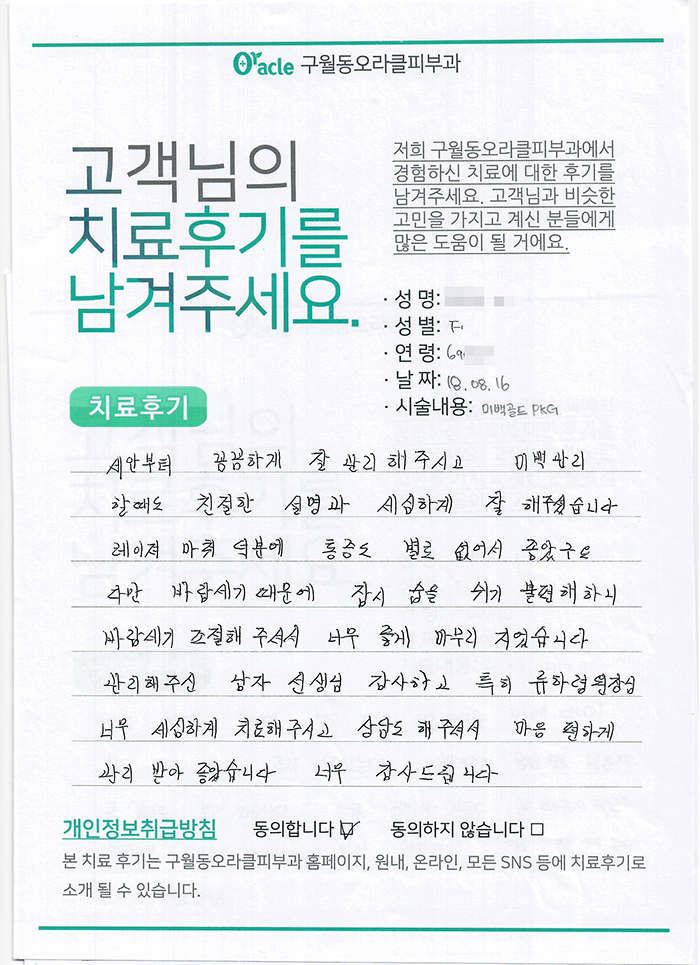 Oracle 구월동오라클피부과
고객님의
치료후기를
남겨주세요.
저희 구월동오라클피부과에서
경험하신 치료에 대한 후기를
남겨주세요. 고객님과 비슷한
고민을 가지고 계신 분들에게
많은 도움이 될 거에요.
· 성 명:
· 성 별: F
· 연 령: 69
· 날 짜: 18.08.16
· 시술내용: 미백골드 PKG
치료후기
세안부터 꼼꼼하게 잘 관리해주시고 미백관리
할때도 친절한 설명과 세심하게 잘 해주셨습니다
레이저 마취 덕분에 통증도 별로 없어서 좋았구요
다만 바람세기 때문에 잠시 숨을 쉬기 불편해하니
바람세기 조절해 주셔서 너무 좋게 마무리 지었습니다
관리해주신 남자 선생님 감사하고 특히 류하령원장님
너무 세심하게 치료해주시고 상담도 해주셔서 마음 편하게
관리 받아 좋았습니다 너무 감사드립니다
개인정보취급방침 동의합니다 ☑ 동의하지 않습니다 □
본 치료 후기는 구월동오라클피부과 홈페이지, 원내, 온라인, 모든 SNS 등에 치료후기로
소개 될 수 있습니다.